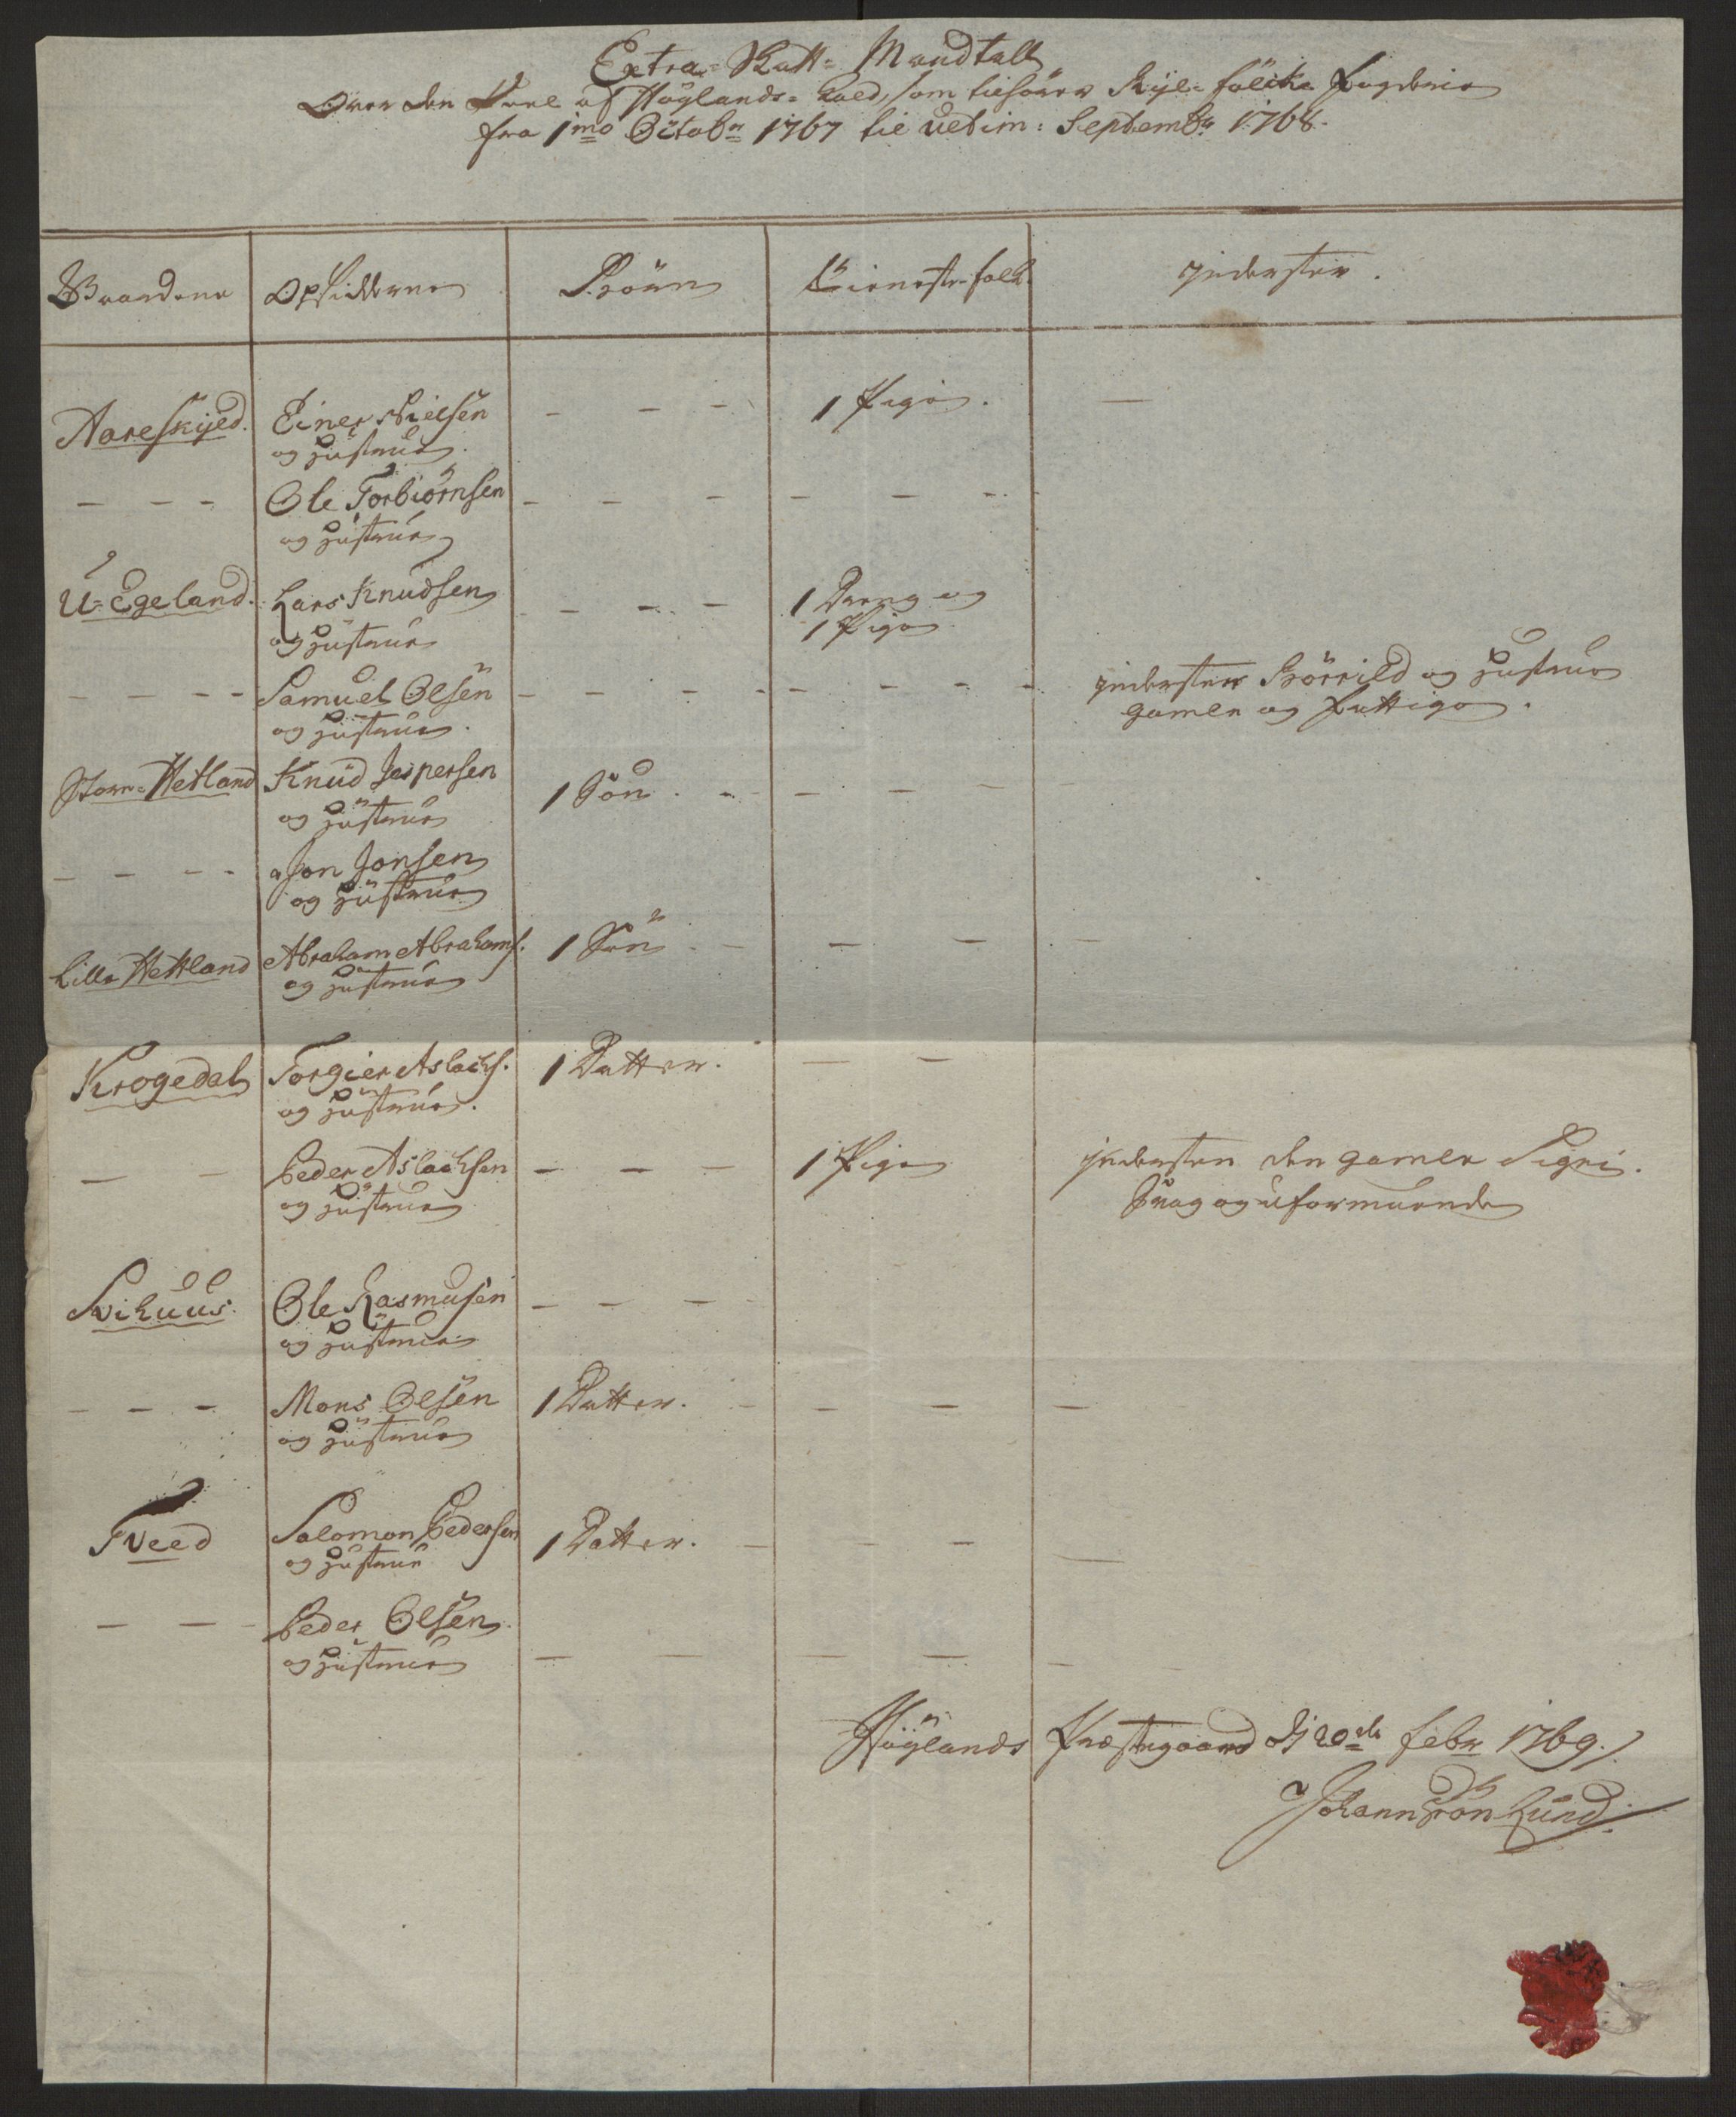 Extra-Skatt-Mandtall
Over den Deel af Höylands-Gield, som tilhörer Ryefölcke Fogderie
fra 1mo Octobr 1767 til ultim: Septembr 1768.
Gaardene Opsidderne Börn Tieneste-folk Jnderster.
Aareskjed. Einer Nielsen - - - 1 Pige. -
og Hustrue.
- - - Ole Torbiörnsen - - - - - -
og Hustrue
U-Egeland. Lars Knudsen - - - 1 Dreng og
og Hustrue 1 Pige
- - - - Samuel Olsen - - - - - - - - Jnderster Börrild og Hustrue
og Hustrue. gamle og Fattige.
Store-Hetland Knud Jespersen 1 Sön. - - - - -
og Hustrue
- - - - Jon Jonsen
og Hustrue
Lille Hettland Abraham Abrahams. 1 Sön - - - - -
og Hustrue
Krogedal Torgier Aslachs. 1 Datter. - -
og Hustrue.
- - Peder Aslachsen - - - 1 Pige Jndersten den gamle Sigri.
og Hustrue Svag og uformuende
Svihuus. Ole Rasmusen - - - -
og Hustrue
- - - Mons Olsen 1 Datter. - - - -
og Hustrue
Tveed Salomon Pedersen 1 Datter. - - - -
og Hustrue
- - - Peder Olsen
og Hustrue - - - - -
Höylands Præstegaard d 20de Febr 1769.
Johann Grön Lund.